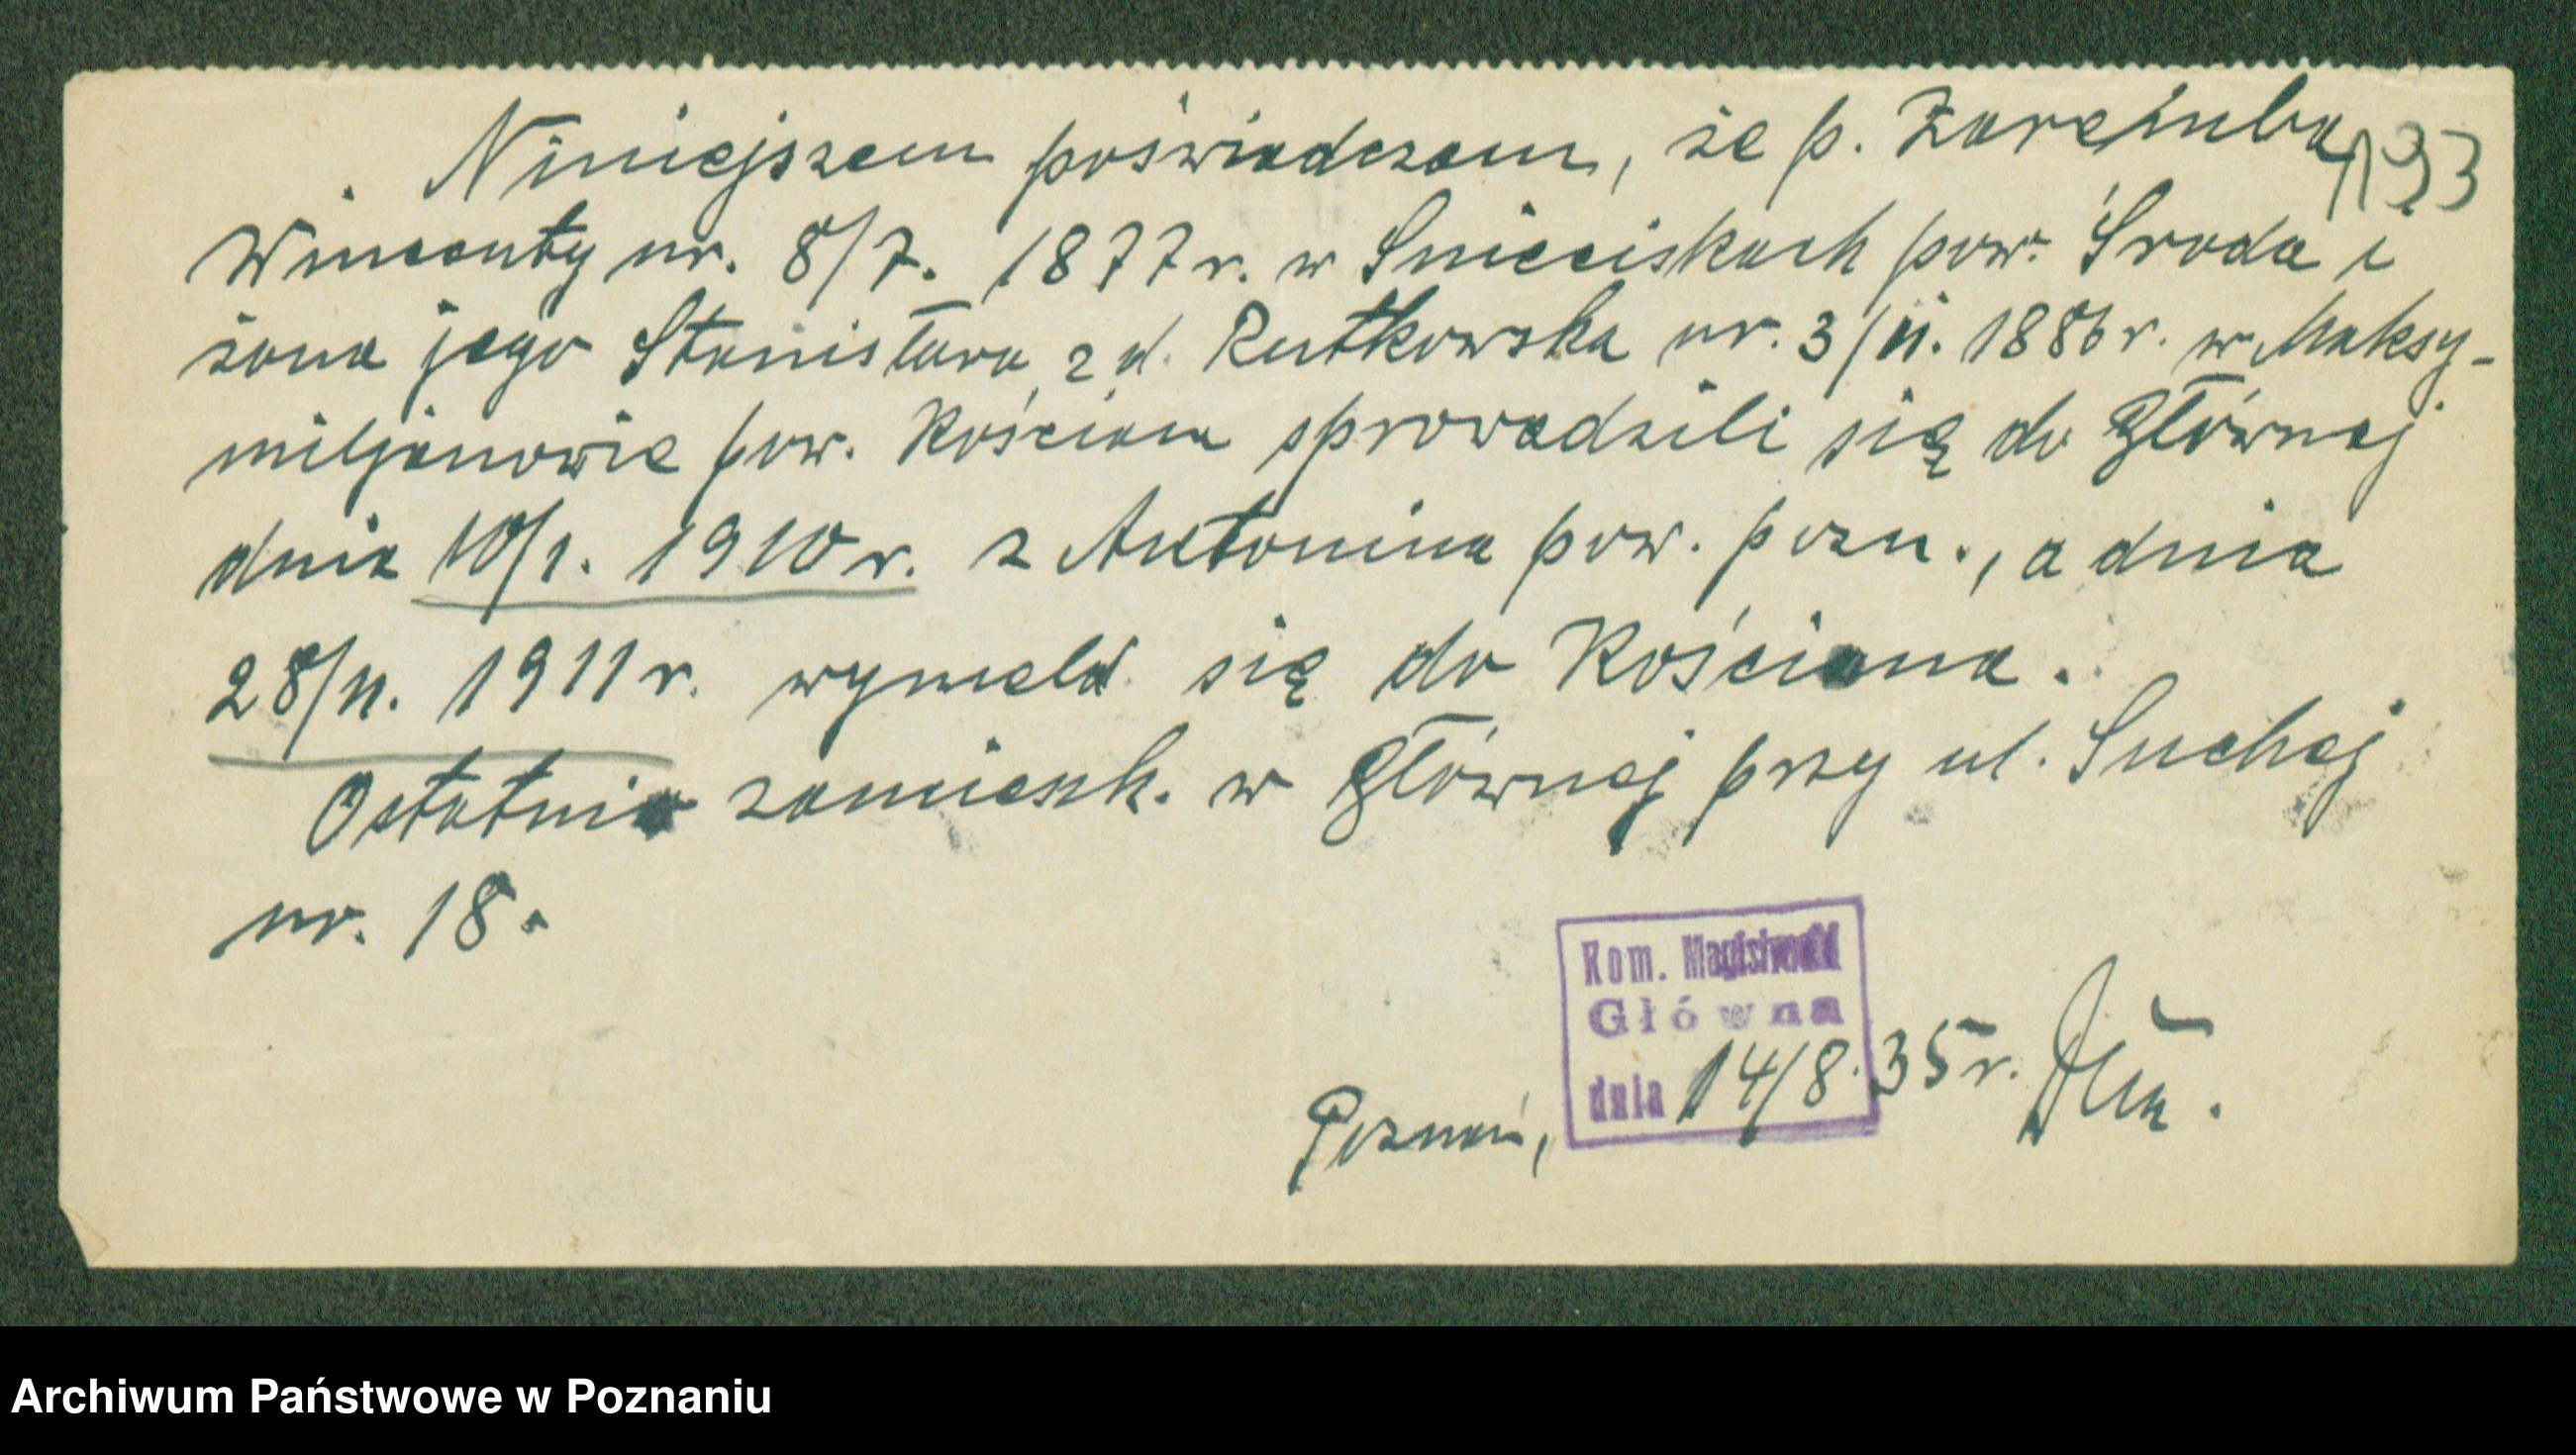 Niniejszem poświadczam, że p. Zaremba 193
Wincenty ur. 8/7. 1877 r. w Śnieciskach pow. Środa i
żona jego Stanisława z d. Rutkowska ur. 3/11. 1886 r. w Maksy-
miljanowie pow. Kościan sprowadzili się do Głównej
dnia 10/1. 1910 r. z Antonina pow. pozn., a dnia
28/11. 1911 r. wymeld. się do Kościana.
Ostatnio zamieszk. w Głównej przy ul. Suchej
nr. 18.
Kom. Magistratu
Główna
Poznań, dnia 14/8. 35 r.
Archiwum Państwowe w Poznaniu